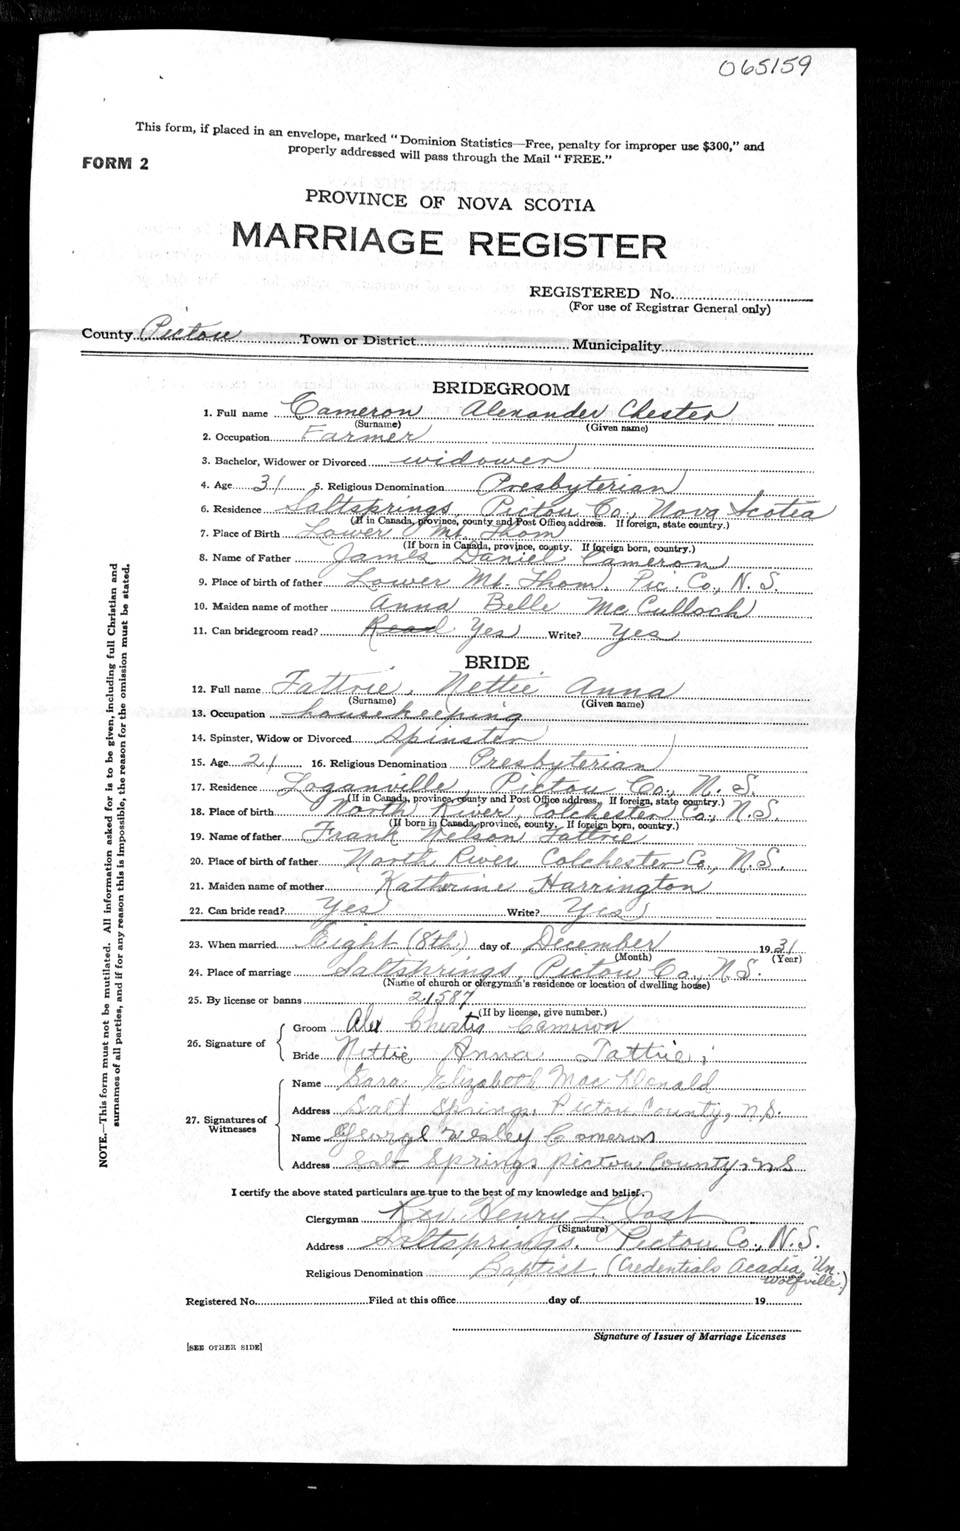 065159
This form, if placed in an envelope, marked "Dominion Statistics—Free, penalty for improper use $300," and
properly addressed will pass through the Mail "FREE."
FORM 2
PROVINCE OF NOVA SCOTIA
MARRIAGE REGISTER
REGISTERED No.
(For use of Registrar General only)
County Pictou Town or District Municipality
BRIDEGROOM
1. Full name Cameron Alexander Chester
(Surname) (Given name)
2. Occupation Farmer
3. Bachelor, Widower or Divorced widower
4. Age 31 5. Religious Denomination Presbyterian
6. Residence Saltsprings, Pictou Co., Nova Scotia
(If in Canada, province, county and Post Office address. If foreign, state country.)
7. Place of Birth Lower Mt. Thom
(If born in Canada, province, county. If foreign born, country.)
8. Name of Father James Daniel Cameron
9. Place of birth of father Lower Mt. Thom, Pic. Co., N.S.
10. Maiden name of mother Anna Belle McCulloch
11. Can bridegroom read? Read Yes Write? Yes
BRIDE
12. Full name Tattrie, Nettie Anna
(Surname) (Given name)
13. Occupation housekeeping
14. Spinster, Widow or Divorced Spinster
15. Age 21 16. Religious Denomination Presbyterian
17. Residence Loganville, Pictou Co., N.S.
(If in Canada, province, county and Post Office address. If foreign, state country.)
18. Place of birth North River, Colchester Co., N.S.
(If born in Canada, province, county. If foreign born, country.)
19. Name of father Frank Nelson Tattrie
20. Place of birth of father North River Colchester Co., N.S.
21. Maiden name of mother Katherine Harrington
22. Can bride read? Yes Write? Yes
23. When married Eight (8th) day of December 1931
(Month) (Year)
24. Place of marriage Saltsprings, Pictou Co., N.S.
(Name of church or clergyman's residence or location of dwelling house)
25. By license or banns 21587
(If by license, give number.)
26. Signature of
Groom Alex Chester Cameron
Bride Nettie Anna Tattrie
27. Signatures of Witnesses
Name Sara Elizabeth MacDonald
Address Salt Springs, Pictou County, N.S.
Name George Wesley Cameron
Address Salt Springs Pictou County, N.S
I certify the above stated particulars are true to the best of my knowledge and belief.
Clergyman Rev. Henry L.
(Signature)
Address Saltsprings, Pictou Co., N.S.
Religious Denomination Baptist, (Credentials Acadia Un.
Wolfville)
Registered No. Filed at this office day of 19
Signature of Issuer of Marriage Licenses
[SEE OTHER SIDE]
NOTE.—This form must not be mutilated. All information asked for is to be given, including full Christian and
surnames of all parties, and if for any reason this is impossible, the reason for the omission must be stated.